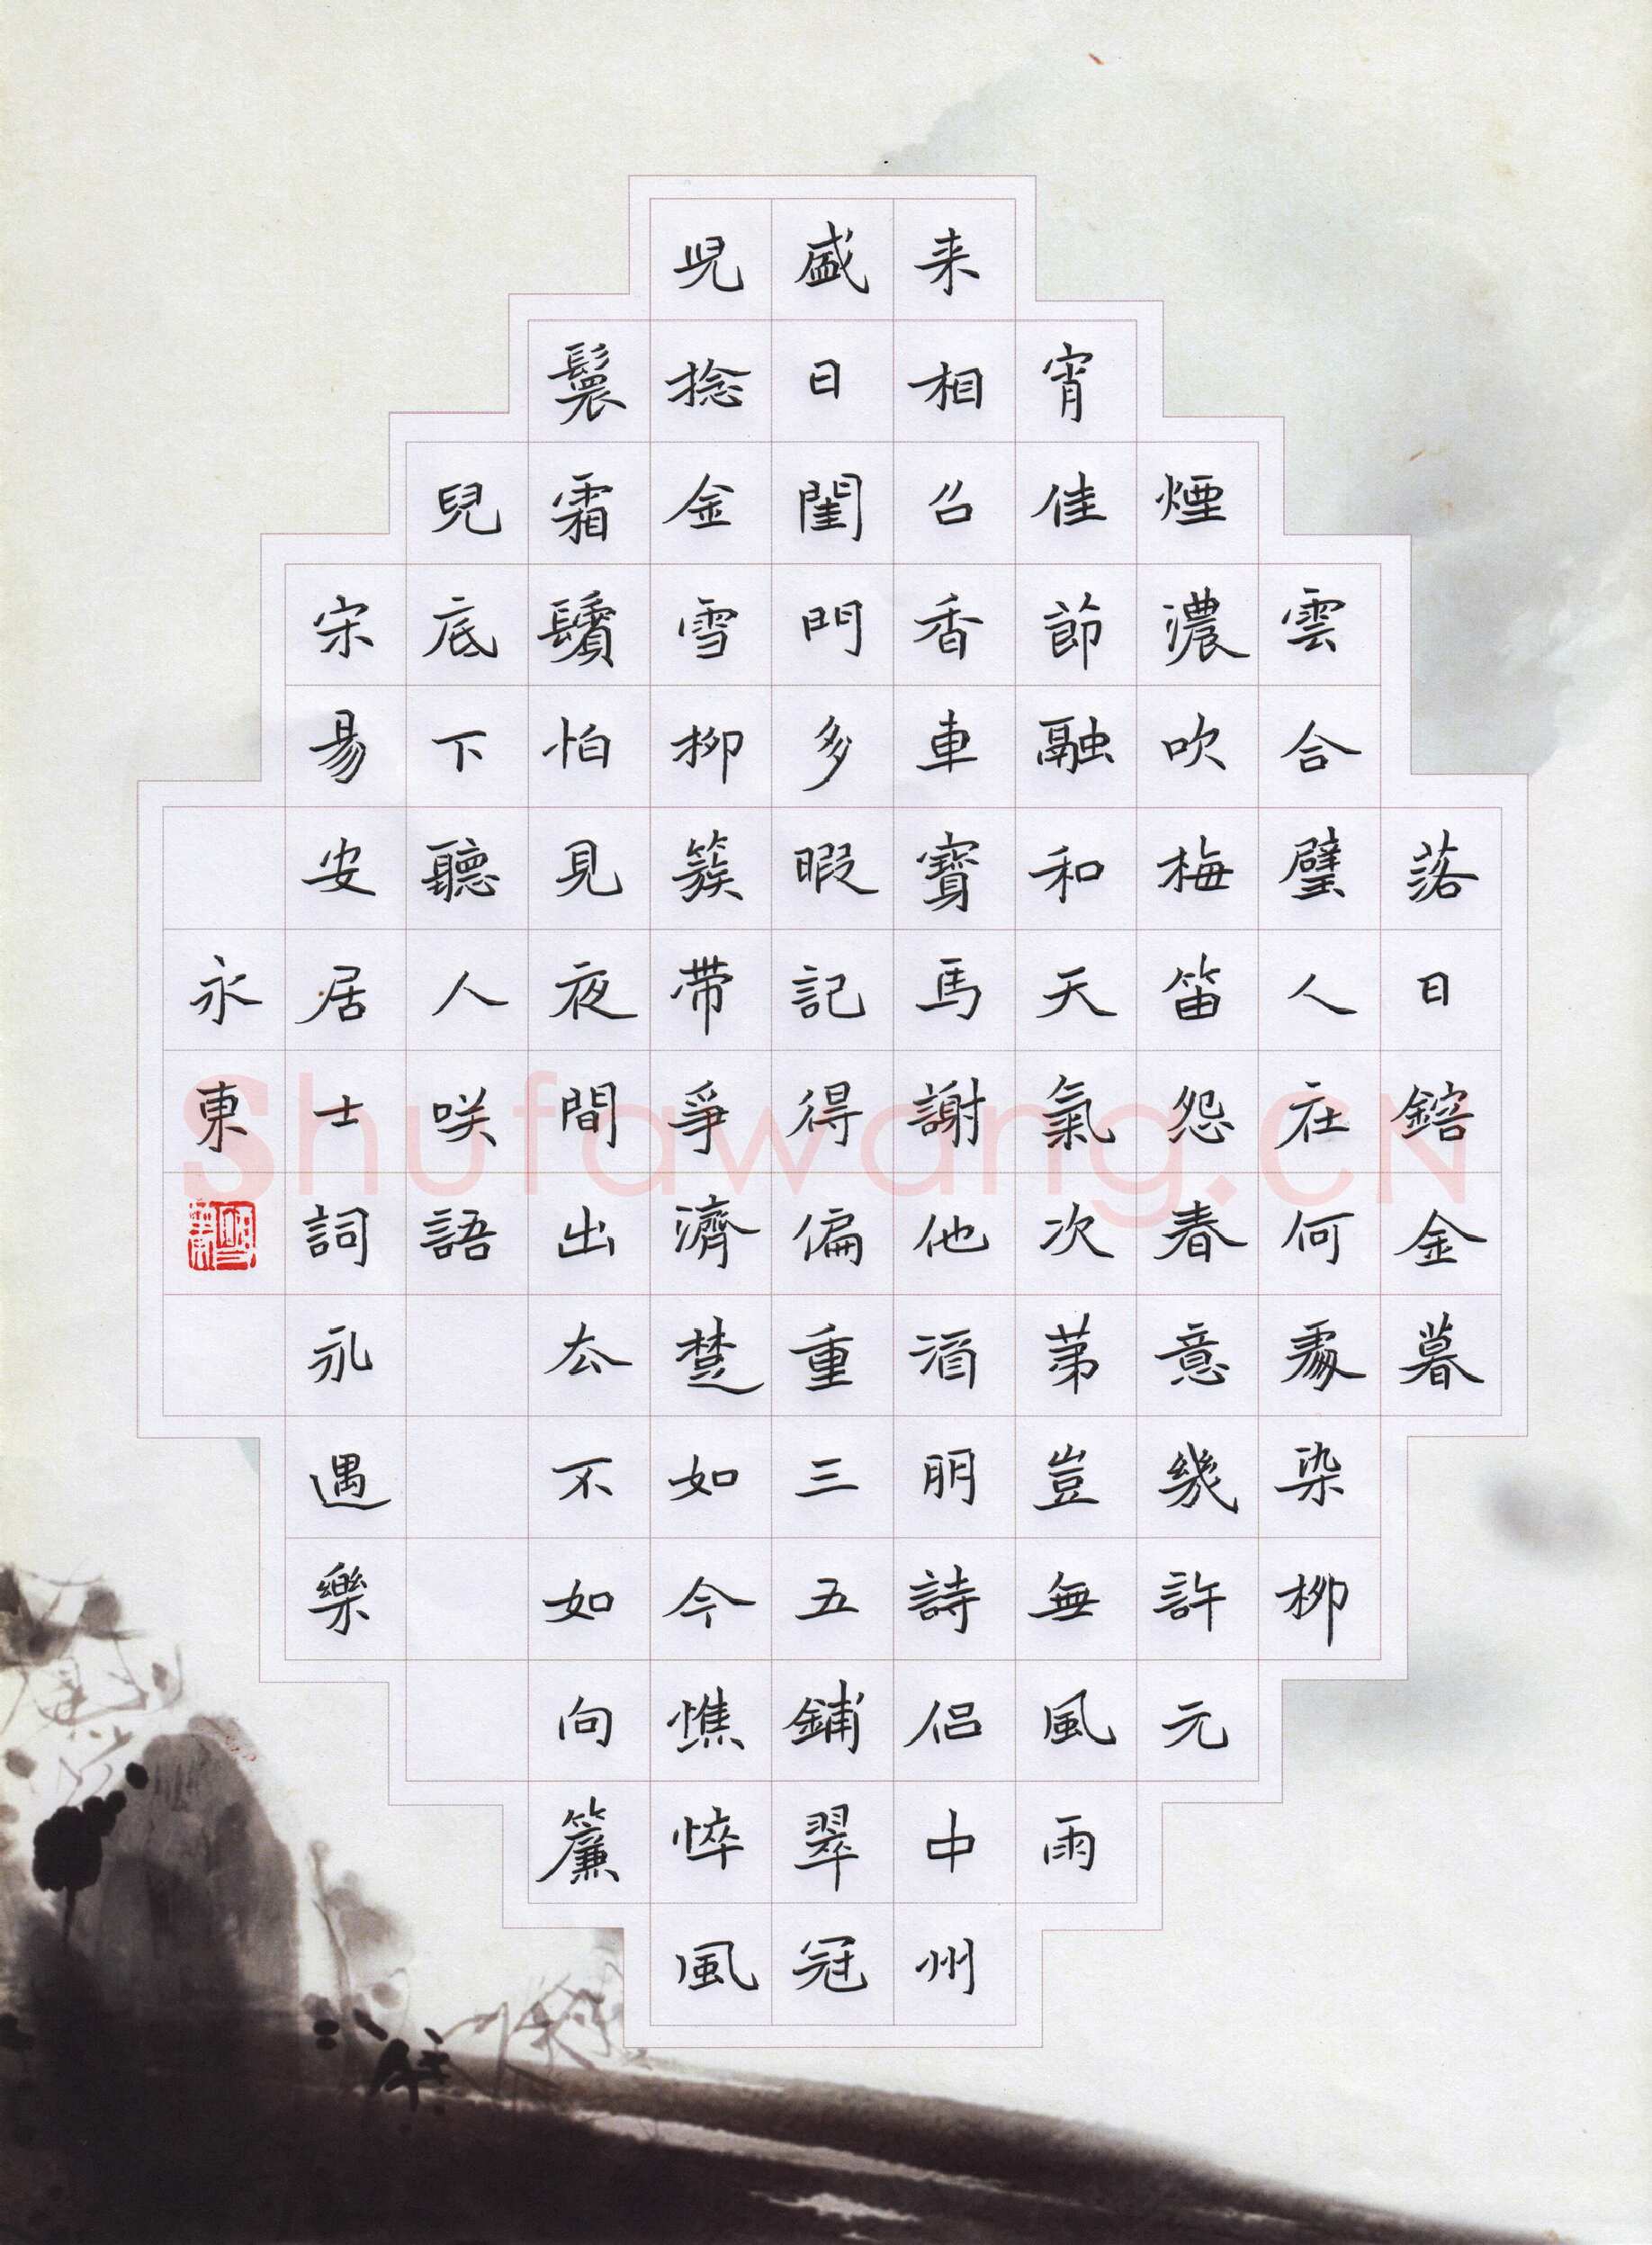 落日鎔金暮
雲合璧人在何處染柳
煙濃吹梅笛怨春意幾許元
宵佳節融和天氣次第豈無風雨
来相召香車寶馬謝他酒朋詩侣中州
盛日閨門多暇記得偏重三五鋪翠冠
兒捻金雪柳簇带爭濟楚如今憔悴風
鬟霜鬢怕見夜間出去不如向簾
兒底下聽人咲語
宋易安居士詞永遇樂
永東
Shufawang.CN